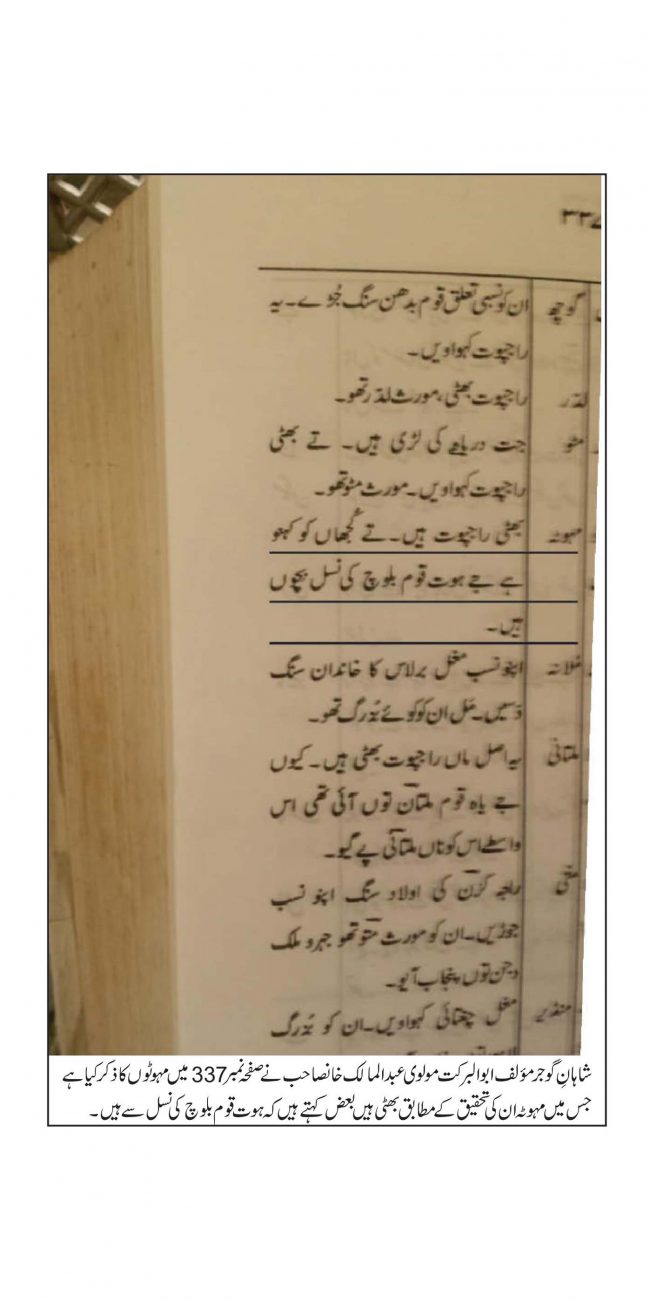 ۳۳۷
گوچھ ان کو نسبی تعلق قوم بدھن سنگ جُڑے۔ یہ
راجپوت کہواویں۔
لدّر راجپوت بھٹی، مورث لدّر تھو۔
مٹو جت دریاہ کی لڑی ہیں۔ تے بھٹی
راجپوت کہواویں۔ مورث مٹو تھو۔
مہوٹہ بھٹی راجپوت ہیں۔ تے کُجھاں کو کہنو
ہے جے ہوت قوم بلوچ کی نسل بچوں
ہیں۔
مُلانہ اپنو نسب مغل برلاس کا خاندان سنگ
دَسیں۔ مَل ان کو کوئے بُدرگ تھو۔
ملتانی یہ اصل ماں راجپوت بھٹی ہیں۔ کیوں
جے یاہ قوم ملتان توں آئی تھی اس
واسطے اس کو ناں ملتانی پے گیو۔
راجہ کَرَن کی اولاد سنگ اپنو نسب
جوڑیں۔ ان کو مورث متو تھو جہرو ملک
دجن توں پنجاب آیو۔
منڈیر مغل چغتائی کہواویں۔ ان کو بُدرگ
شاہانِ گوجر مؤلف ابوالبرکت مولوی عبدالمالک خانصاحب نے صفحہ نمبر 337 میں مہوٹوں کا ذکر کیا ہے
جس میں مہوٹہ ان کی تحقیق کے مطابق بھٹی ہیں بعض کہتے ہیں کہ ہوت قوم بلوچ کی نسل سے ہیں۔